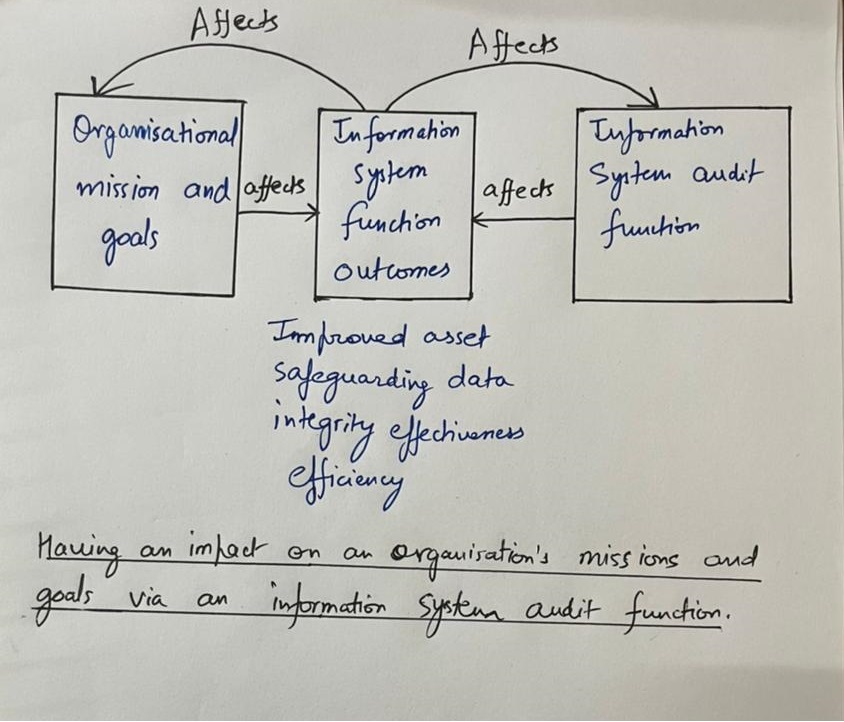 Affects
Affects
Organisational
mission and
goals
affects
Information
system
function
outcomes
affects
Information
System audit
function
Improved asset
safeguarding data
integrity effectiveness
efficiency
Having an impact on an organisation's missions and
goals via an information system audit function.